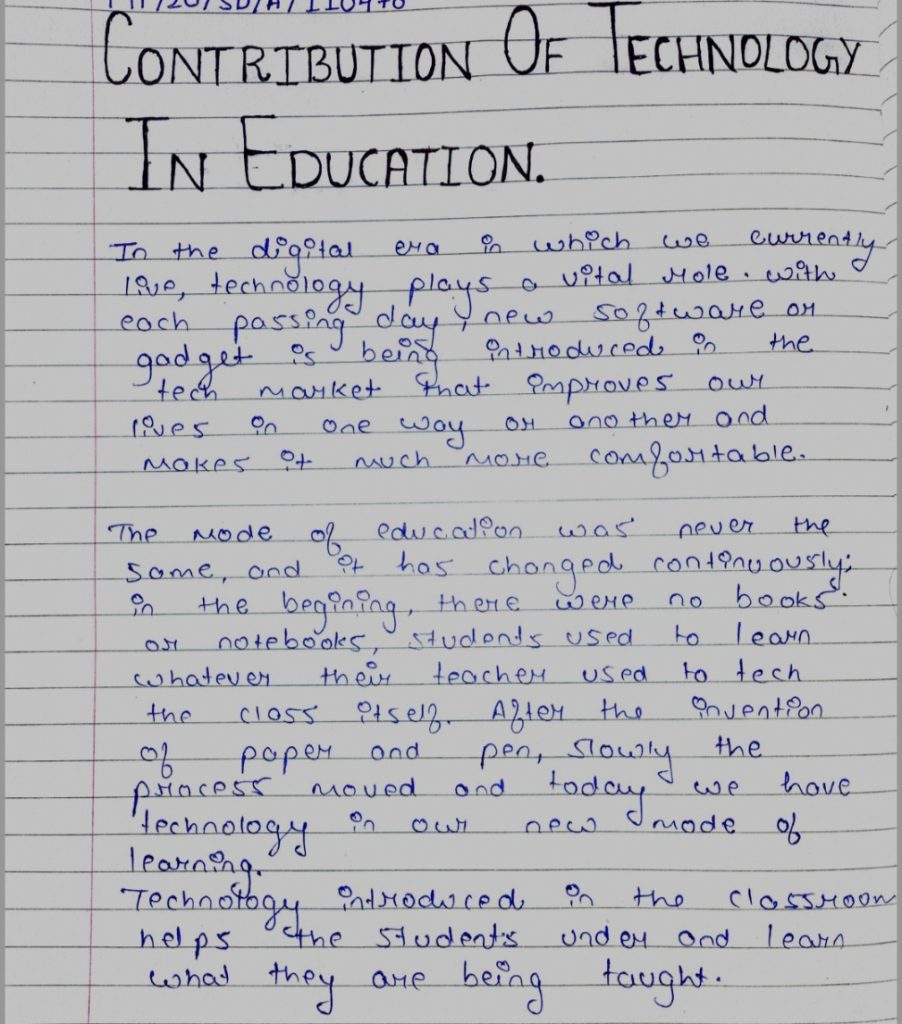 CONTRIBUTION OF TECHNOLOGY
IN EDUCATION.
In the digital era in which we currently
live, technology plays a vital role. with
each passing day, new software or
gadget is being introduced in the
tech market that improves our
lives in one way or another and
makes it much more comfortable.
The mode of education was never the
same, and it has changed continuously;
in the begining, there were no books
or notebooks, students used to learn
whatever their teacher used to tech
the class itself. After the invention
of paper and pen, slowly the
process moved and today we have
technology in our new mode of
learning.
Technology introduced in the classroom
helps the students under and learn
what they are being taught.